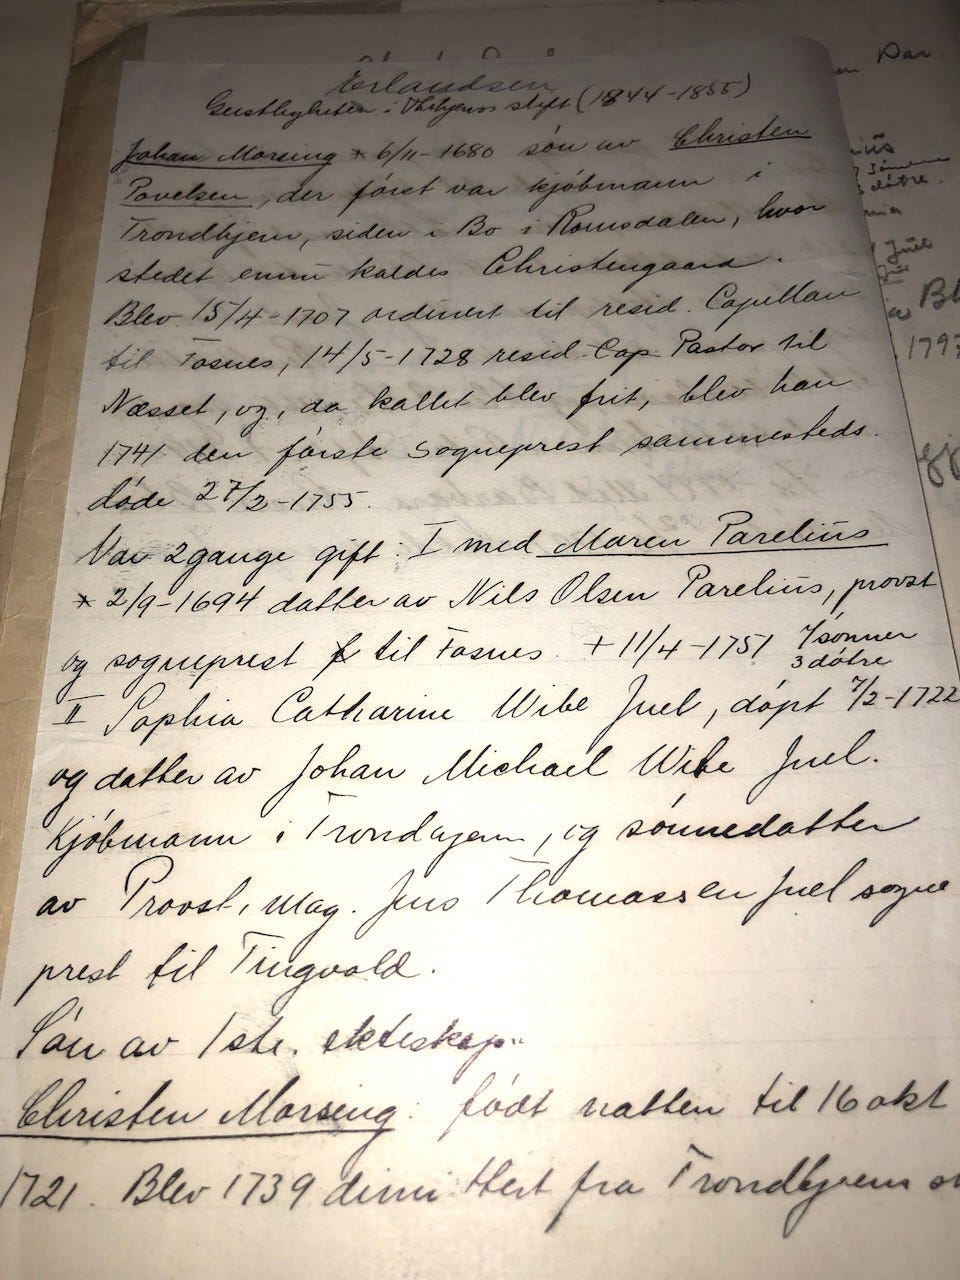 Erlandsen
Geistligheten i Thrhjems stift (1844-1855)
Johan Morsing * 6/11-1680 søn av Christen
Povelsen, der først var kjøbmann i
Trondhjem, siden i Bo i Romsdalen, hvor
stedet ennu kaldes Christengaard.
Blev 15/4-1707 ordinert til resid. Capellan
til Fosnes, 14/5-1728 resid. Cap Pastor til
Næsset, og, da kallet blev frit, blev han
1741 den første Sogneprest sammesteds.
døde 27/2-1755.
Var 2 gange gift: I med Maren Parelius
* 2/9-1694 datter av Nils Olsen Parelius, provst
og sogneprest til Fosnes. + 11/4-1751 7 sønner
3 døtre
II Sophia Catharine Wibe Juel, døpt 7/2-1722
og datter av Johan Michael Wibe Juel.
Kjøbmann i Trondhjem, og sønnedatter
av Provst, Mag. Jens Thomassen Juel sogne
prest til Tingvold.
Søn av 1ste. ekteskap..
Christen Morsing: født natten til 16 okt
1721. Blev 1739 dimittert fra Trondhjems